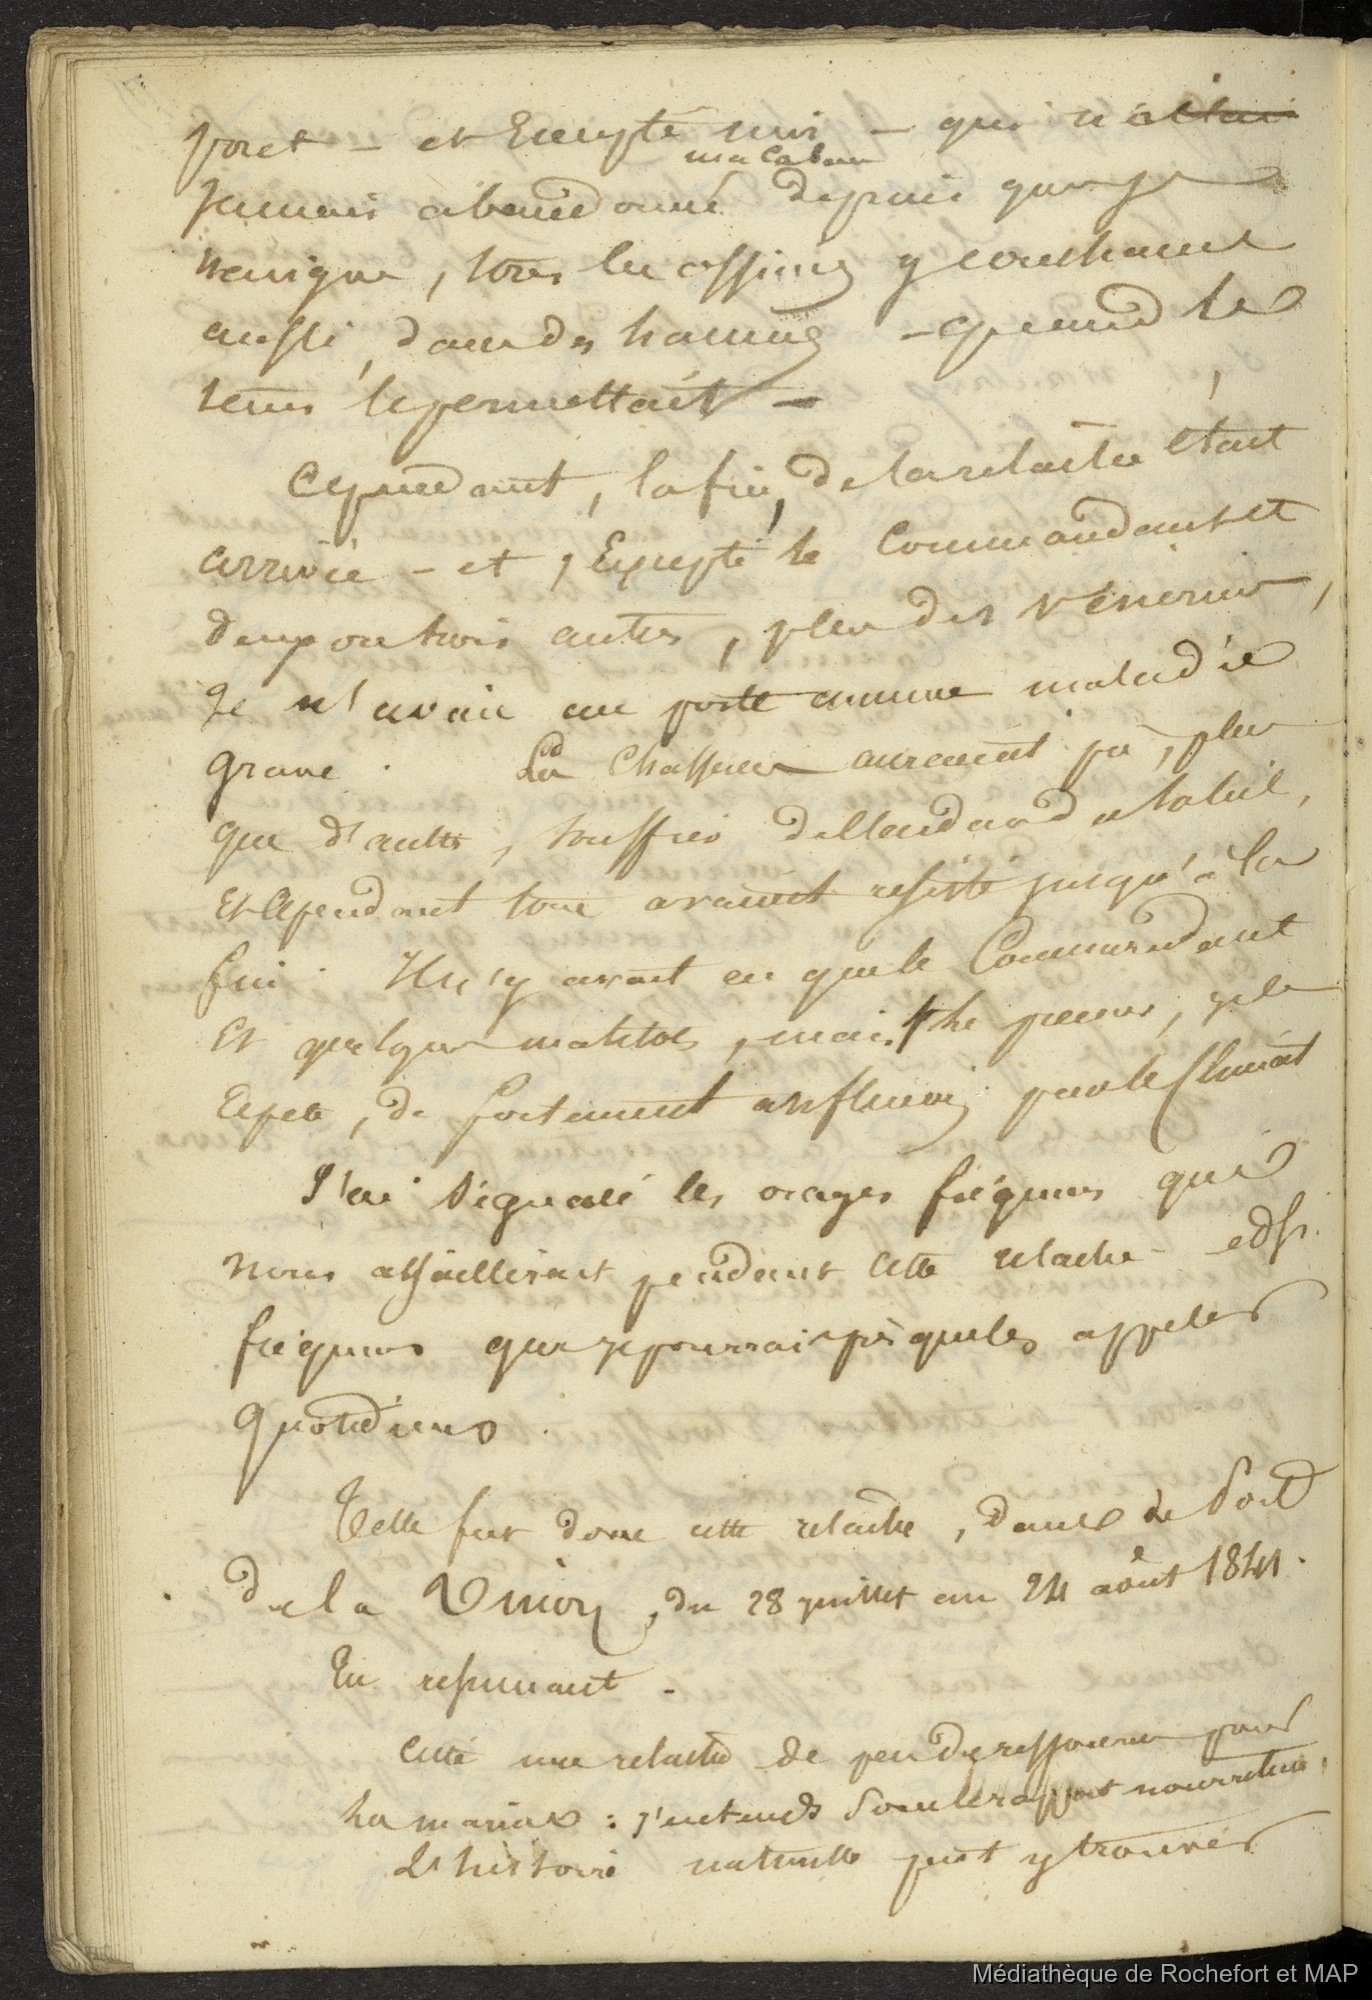 pont - et Excepté moi - qui n'ai
ma cabane
jamais abandonné depuis que je
navigue, tous les officiers y couchaient
aussi, dans des hamacs - quand le
tems le permettait -
Cependant, la fin, de la relâche était
arrivée - et, Excepté le Commandant et
deux ou trois autres, plus des vénériens,
Je n'avais au poste aucune maladie
grave. Les Chasseurs auraient pû, plus
que d'autres, souffrir de l'ardeur du soleil,
Et Cependant tous avaient résisté jusqu'à la
fin. Il n'y avait eu que le Commandant
Et quelques matelots, mais
de fortement influencés par le Climat
J'ai signalé les orages fréquens qui
nous assaillirent pendant cette relache - et si
fréquens que je pourrais presque les appeler
quotidiens.
Telle fut donc cette relâche, dans le Port
de la Union, du 28 juillet au 24 août 1841.
En resumant -
C'est une relâche de peu de ressources pour
la marine : j'entends sous le rapport nourriture,
L'histoire naturelle peut y trouver
Médiathèque de Rochefort et MAP